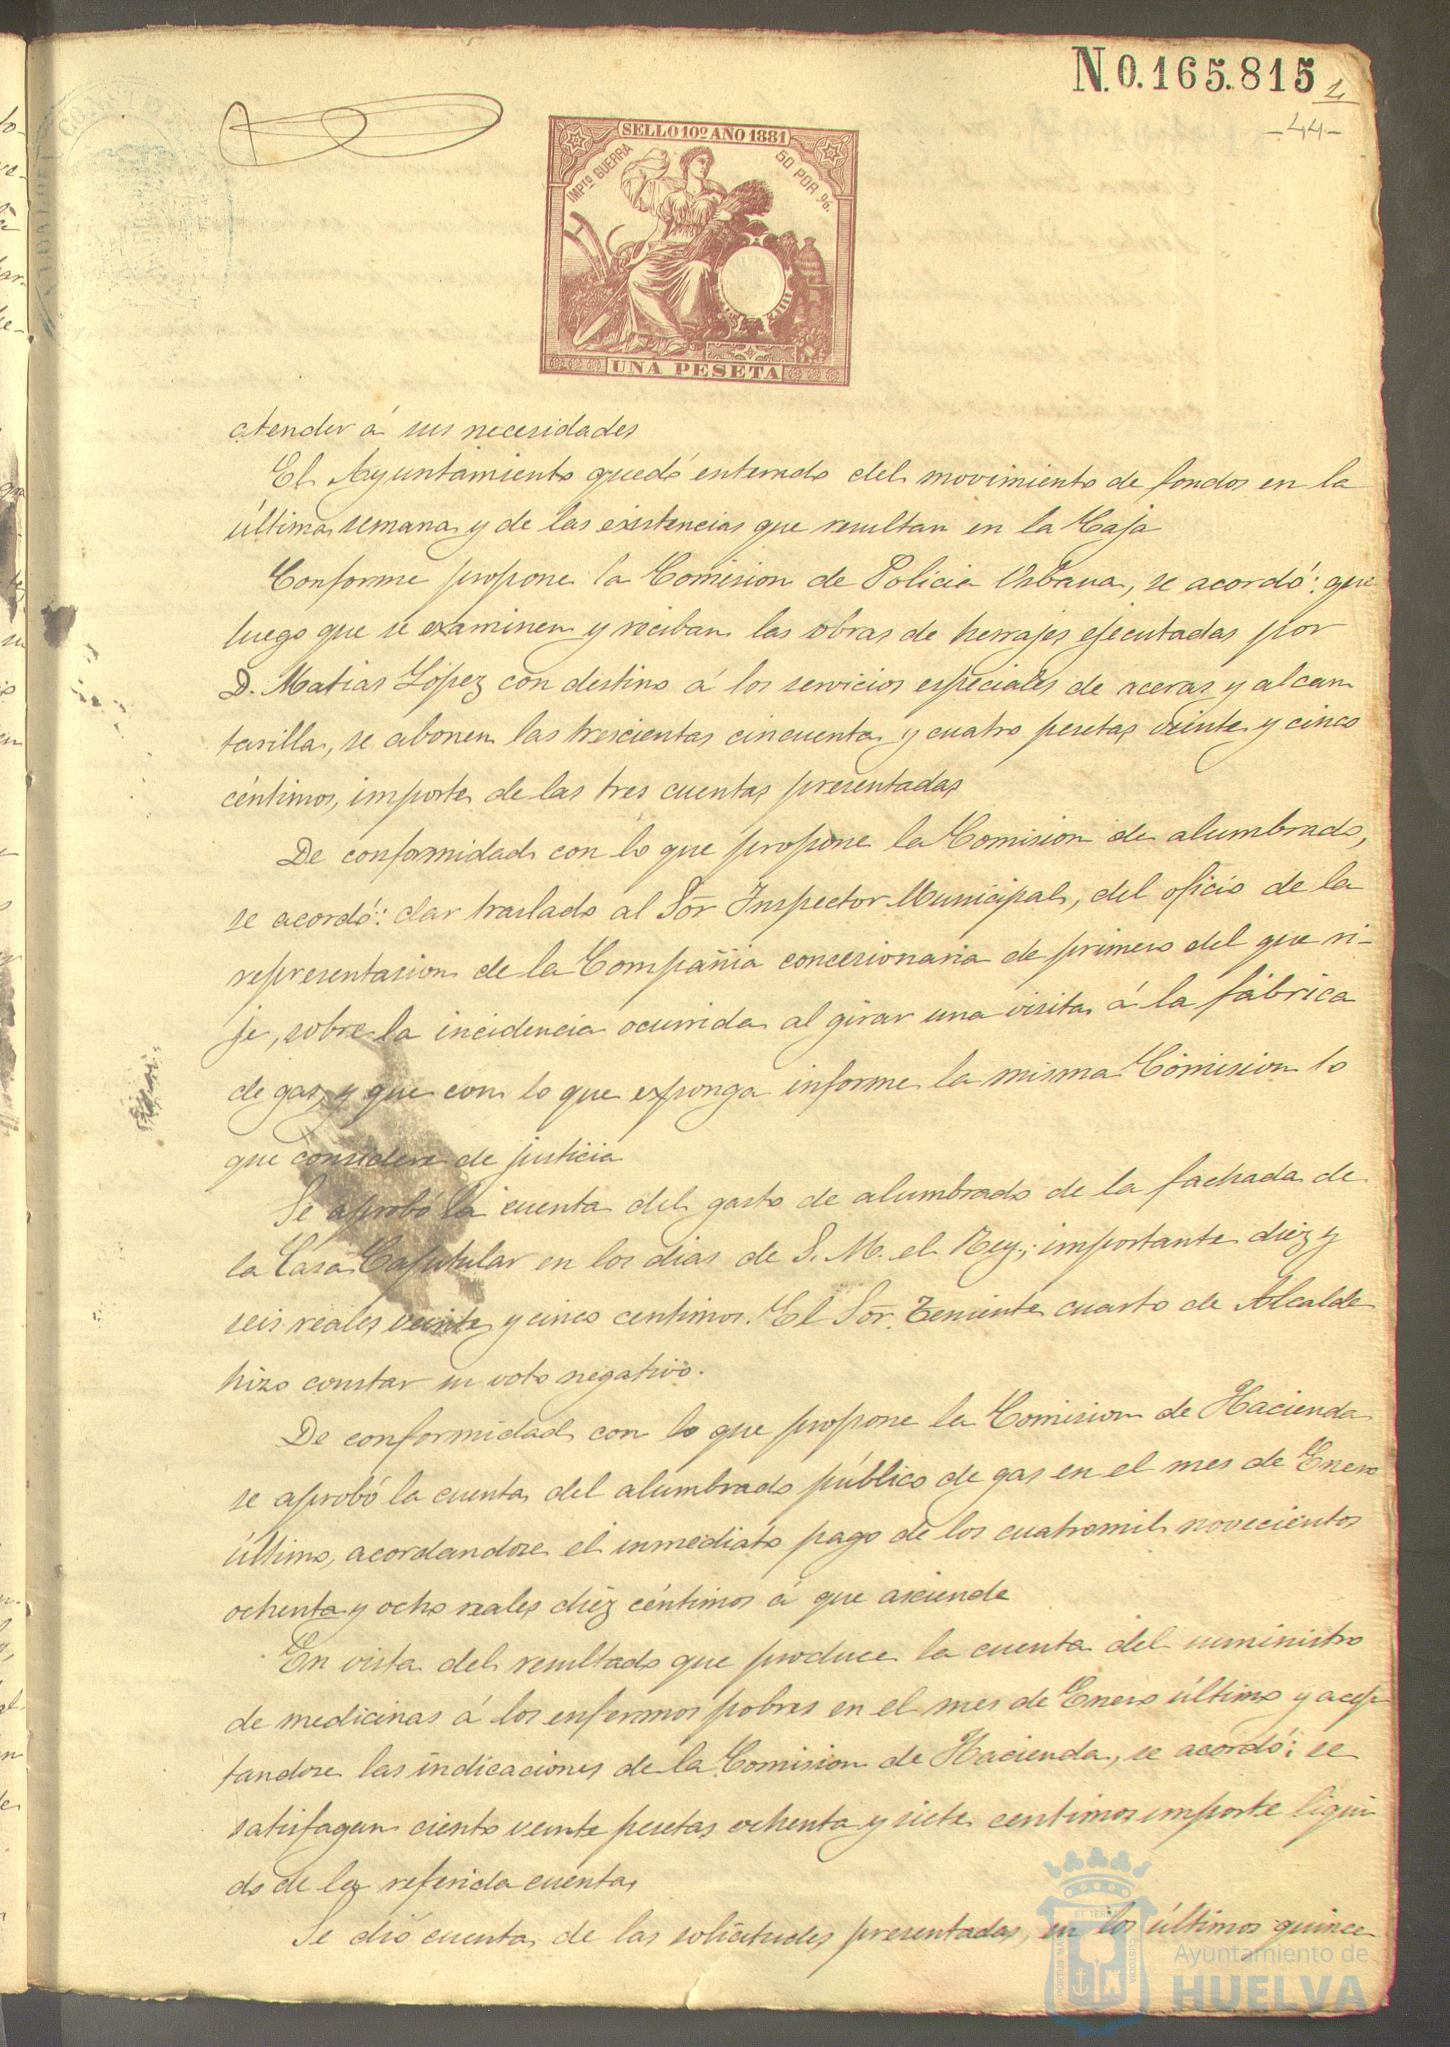 N.0.165.815
-44-
SELLO 10º AÑO 1881
IMPTO GUERRA
50 POR %.
UNA PESETA
atender á sus necesidades
El Ayuntamiento quedó enterado del movimiento de fondos en la
última semana y de las existencias que resultan en la Caja
Conforme propone la Comision de Policia Urbana, se acordó: que
luego que se examinen y reciban las obras de herrajes ejecutadas por
D. Matias López con destino á los servicios especiales de aceras y alcan
tarilla, se abonen las trescientas cincuenta y cuatro pesetas veinte y cinco
céntimos, importe de las tres cuentas presentadas
De conformidad con lo que propone la Comision de alumbrado,
se acordó: dar traslado al Sor Inspector Municipal, del oficio de la
representacion de la Compañia concesionaria de primero del que ri-
je, sobre la incidencia ocurrida al girar una visita á la fábrica
de gas, y que con lo que exponga informe la misma Comision lo
que considere de justicia
Se aprobó la cuenta del gasto de alumbrado de la fachada de
la Casa Capitular en los dias de S. M. el Rey; importante diez y
seis reales veinte y cinco centimos. El Sor. Teniente cuarto de Alcalde
hizo constar su voto negativo.
De conformidad con lo que propone la Comision de Hacienda
se aprobó la cuenta del alumbrado público de gas en el mes de Enero
último, acordandose el inmediato pago de los cuatromil novecientos
ochenta y ocho reales diez céntimos á que asciende
En vista del resultado que produce la cuenta del suministro
de medicinas á los enfermos pobres en el mes de Enero último y acep
tandose las indicaciones de la Comision de Hacienda, se acordó: se
satisfagan ciento veinte pesetas ochenta y siete centimos importe liqui
do de la referida cuenta
Se dió cuenta de las solicitudes presentadas, en los últimos quince
Ayuntamiento de
HUELVA